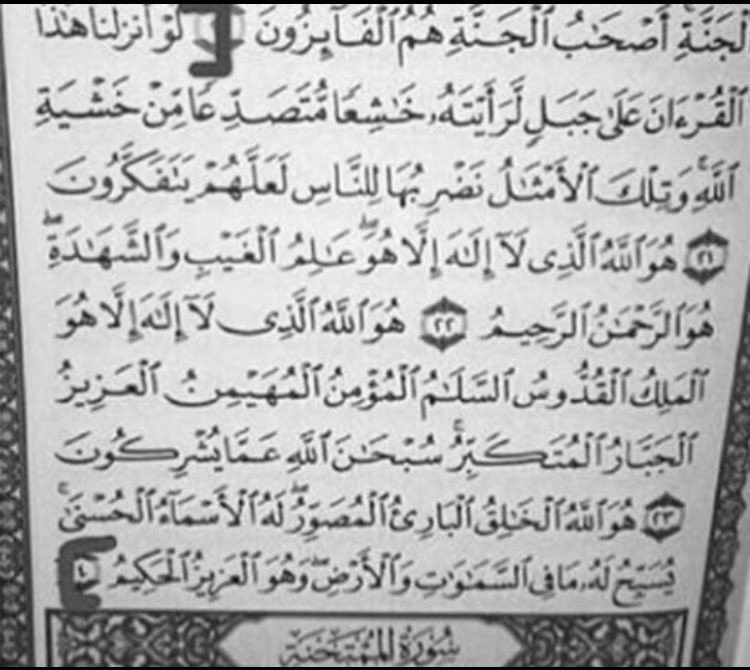 لْجَنَّةِ أَصْحَٰبُ ٱلْجَنَّةِ هُمُ ٱلْفَآئِزُونَ لَوْ أَنزَلْنَا هَٰذَا
ٱلْقُرْءَانَ عَلَىٰ جَبَلٍ لَّرَأَيْتَهُۥ خَٰشِعًا مُّتَصَدِّعًا مِّنْ خَشْيَةِ
ٱللَّهِ ۚ وَتِلْكَ ٱلْأَمْثَٰلُ نَضْرِبُهَا لِلنَّاسِ لَعَلَّهُمْ يَتَفَكَّرُونَ
٢١ هُوَ ٱللَّهُ ٱلَّذِى لَآ إِلَٰهَ إِلَّا هُوَ ۖ عَٰلِمُ ٱلْغَيْبِ وَٱلشَّهَٰدَةِ ۖ
هُوَ ٱلرَّحْمَٰنُ ٱلرَّحِيمُ ٢٢ هُوَ ٱللَّهُ ٱلَّذِى لَآ إِلَٰهَ إِلَّا هُوَ
ٱلْمَلِكُ ٱلْقُدُّوسُ ٱلسَّلَٰمُ ٱلْمُؤْمِنُ ٱلْمُهَيْمِنُ ٱلْعَزِيزُ
ٱلْجَبَّارُ ٱلْمُتَكَبِّرُ ۚ سُبْحَٰنَ ٱللَّهِ عَمَّا يُشْرِكُونَ
٢٣ هُوَ ٱللَّهُ ٱلْخَٰلِقُ ٱلْبَارِئُ ٱلْمُصَوِّرُ ۖ لَهُ ٱلْأَسْمَآءُ ٱلْحُسْنَىٰ ۚ
يُسَبِّحُ لَهُۥ مَا فِى ٱلسَّمَٰوَٰتِ وَٱلْأَرْضِ ۖ وَهُوَ ٱلْعَزِيزُ ٱلْحَكِيمُ
سُورَةُ الْمُمْتَحَنَةِ